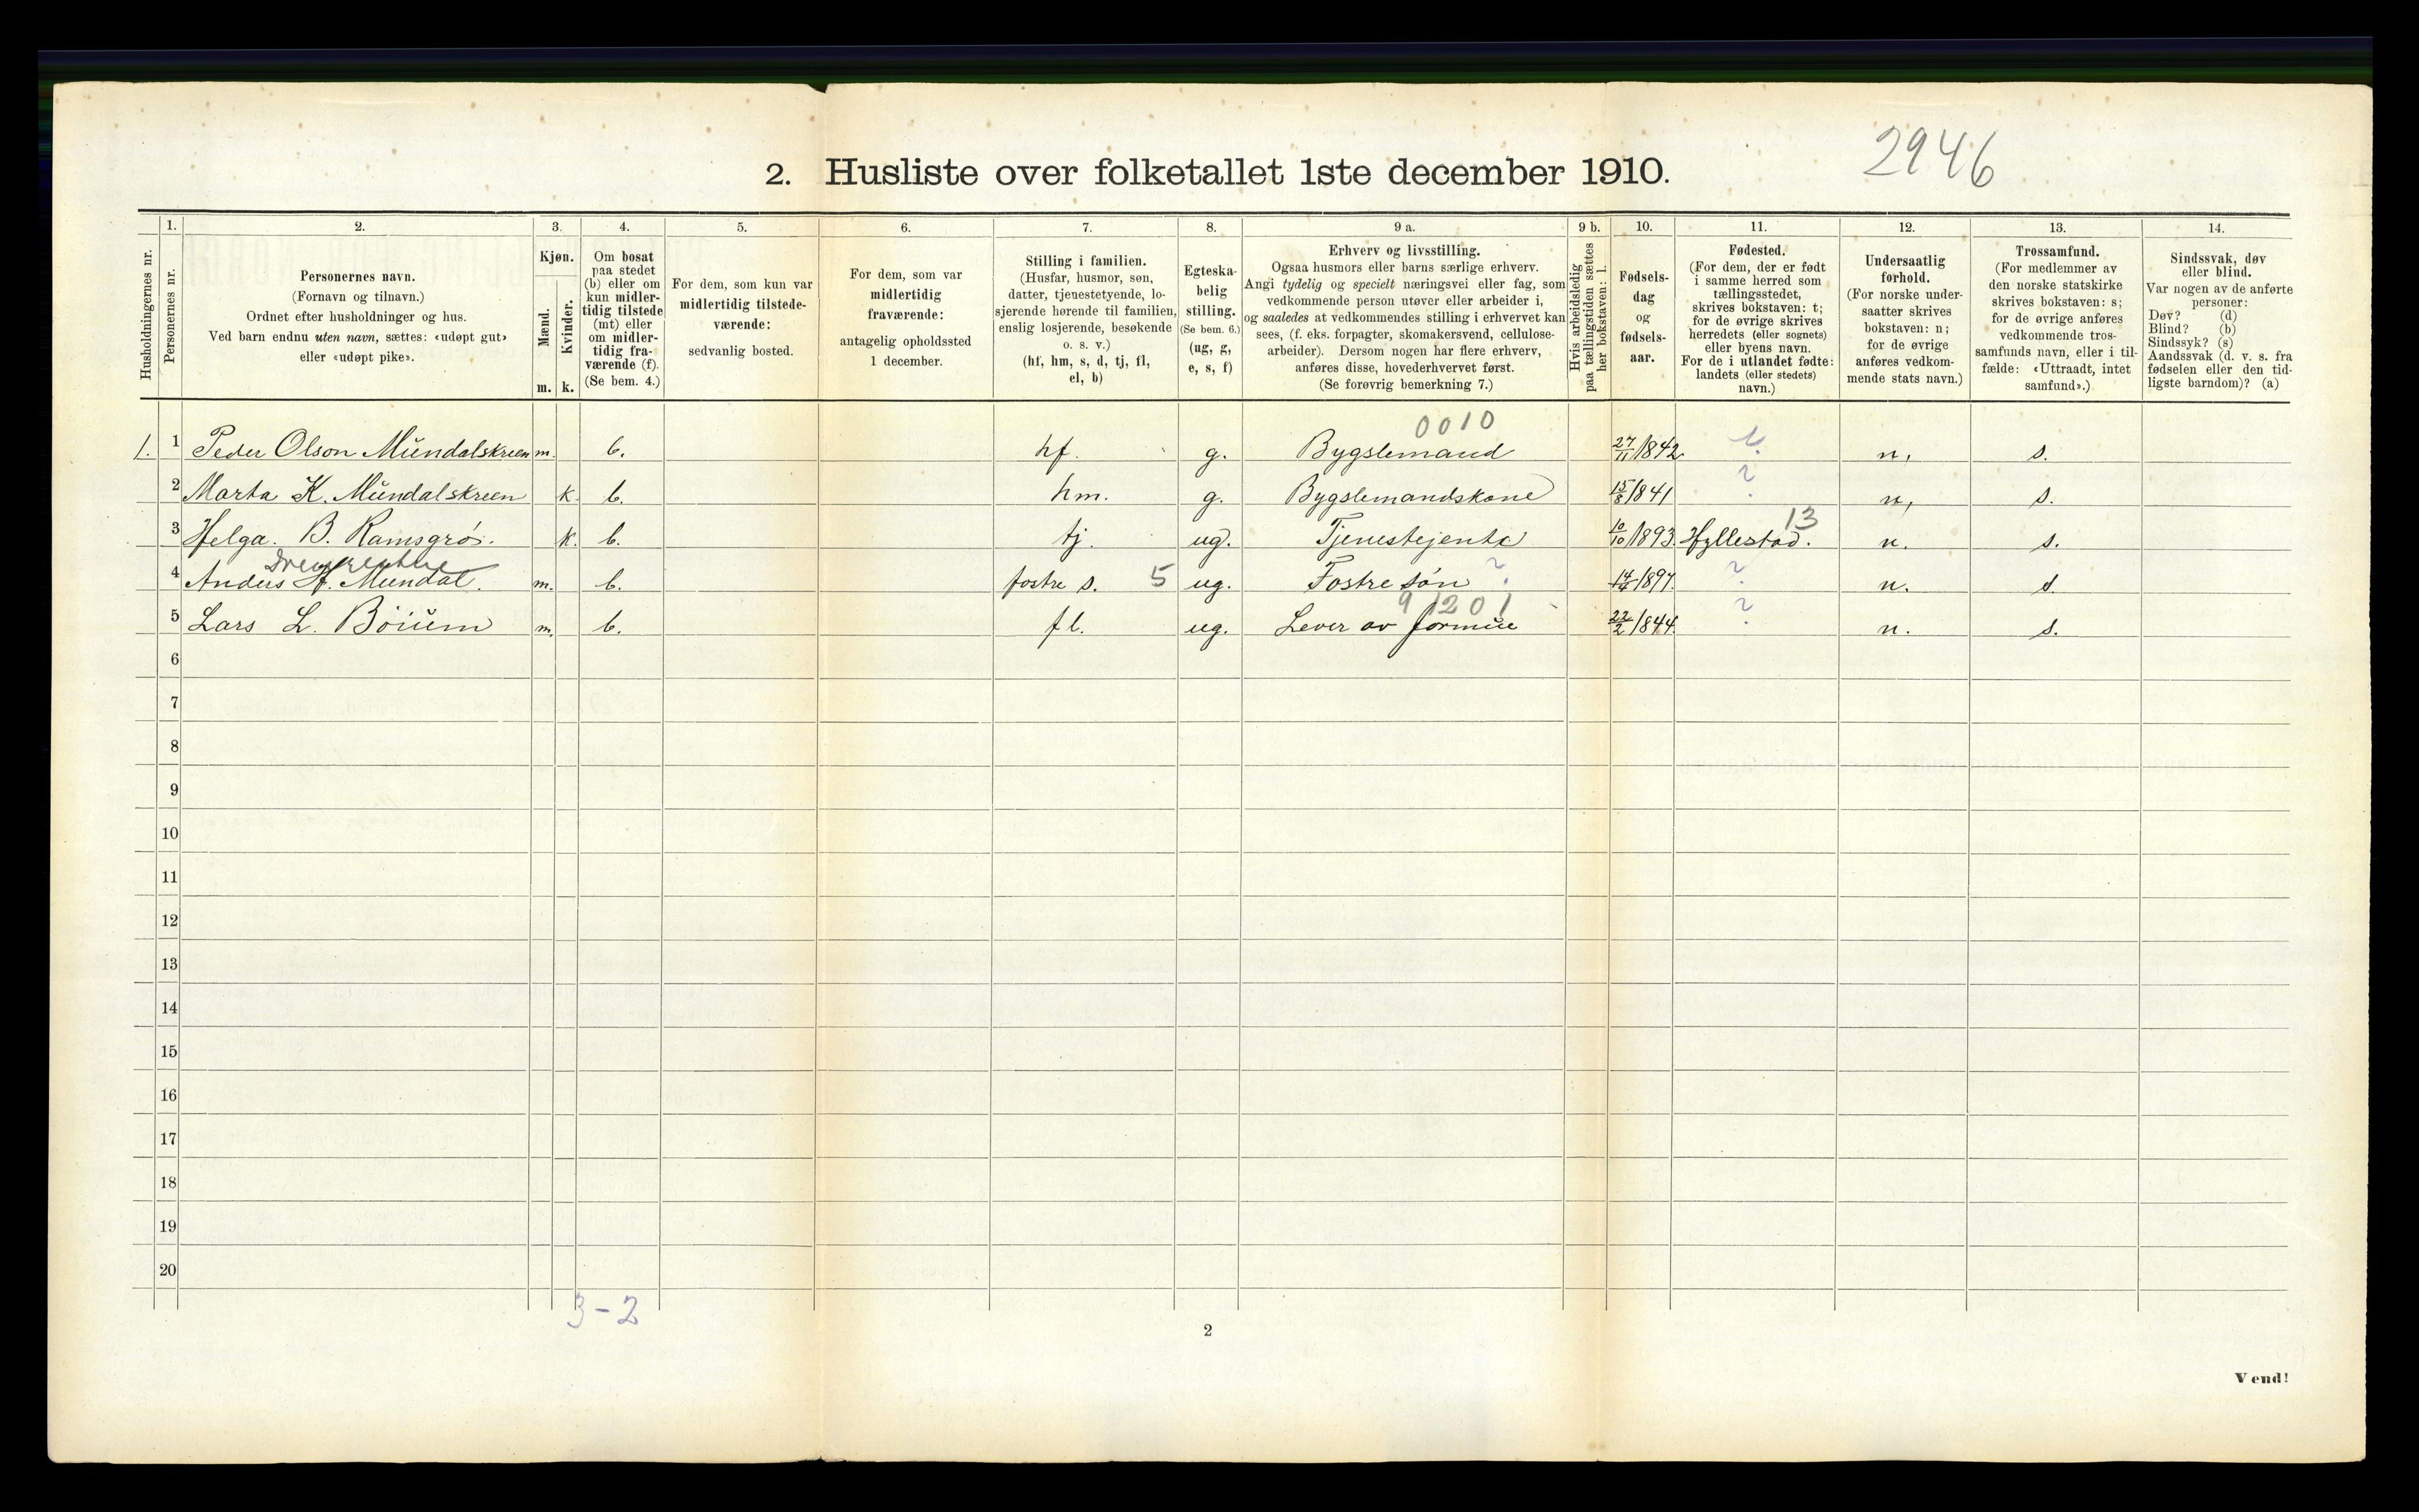 2946
2. Husliste over folketallet 1ste december 1910.
1. 2. 3. 4. 5. 6. 7. 8. 9 a. 9 b. 10. 11. 12. 13. 14.
Husholdningernes nr.
Personernes nr.
Personernes navn.
(Fornavn og tilnavn.)
Ordnet efter husholdninger og hus.
Ved barn endnu uten navn, sættes: «udøpt gut»
eller «udøpt pike».
Kjøn.
Mænd.
Kvinder.
m. k.
Om bosat
paa stedet
(b) eller om
kun midler-
tidig tilstede
(mt) eller
om midler-
tidig fra-
værende (f).
(Se bem. 4.)
For dem, som kun var
midlertidig tilstede-
værende:
sedvanlig bosted.
For dem, som var
midlertidig
fraværende:
antagelig opholdssted
1 december.
Stilling i familien.
(Husfar, husmor, søn,
datter, tjenestetyende, lo-
sjerende hørende til familien,
enslig losjerende, besøkende
o. s. v.)
(hf, hm, s, d, tj, fl,
el, b)
Egteska-
belig
stilling.
(Se bem. 6.)
(ug, g,
e, s, f)
Erhverv og livsstilling.
Ogsaa husmors eller barns særlige erhverv.
Angi tydelig og specielt næringsvei eller fag, som
vedkommende person utøver eller arbeider i,
og saaledes at vedkommendes stilling i erhvervet kan
sees, (f. eks. forpagter, skomakersvend, cellulose-
arbeider). Dersom nogen har flere erhverv,
anføres disse, hovederhvervet først.
(Se forøvrig bemerkning 7.)
Hvis arbeidsledig
paa tællingstiden sættes
her bokstaven: l.
Fødsels-
dag
og
fødsels-
aar.
Fødested.
(For dem, der er født
i samme herred som
tællingsstedet,
skrives bokstaven: t;
for de øvrige skrives
herredets (eller sognets)
eller byens navn.
For de i utlandet fødte:
landets (eller stedets)
navn.)
Undersaatlig
forhold.
(For norske under-
saatter skrives
bokstaven: n;
for de øvrige
anføres vedkom-
mende stats navn.)
Trossamfund.
(For medlemmer av
den norske statskirke
skrives bokstaven: s;
for de øvrige anføres
vedkommende tros-
samfunds navn, eller i til-
fælde: «Uttraadt, intet
samfund».)
Sindssvak, døv
eller blind.
Var nogen av de anførte
personer:
Døv? (d)
Blind? (b)
Sindssyk? (s)
Aandssvak (d. v. s. fra
fødselen eller den tid-
ligste barndom)? (a)
0010
1. 1 Peder Olson Mundalskreen m. b. hf. g. Bygslemand 27/11 1842 n, s.
2 Marta K. Mundalskreen k. b. hm. g. Bygslemandskone 15/8 1841 ? n, s.
13
3 Helga. B. Ramsgrø. k. b. tj. ug. Tjenestejente 10/10 1893. Hyllestad. n. s.
4 Anders H. Mundal. m. b. fostre s. 5 ug. Fostre søn ? 14/4 1897. ? n. s.
91201
5 Lars L. Bøium m. b. fl. ug. Lever av formue 22/2 1844. ? n. s.
6
7
8
9
10
11
12
13
14
15
16
17
18
19
20
3-2
2
Vend!